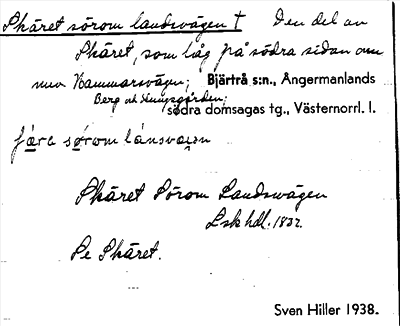 Skäret sörom landsvägen † Den del av
Skäret, som låg på södra sidan om
nuv. Hammarsvägen; Bjärtrå s:n., Ångermanlands
Berg och
södra domsagas tg., Västernorrl. l.
Skäret Sörom Landsvägen
Lsk hdl. 1832.
Se Skäret.
Sven Hiller 1938.